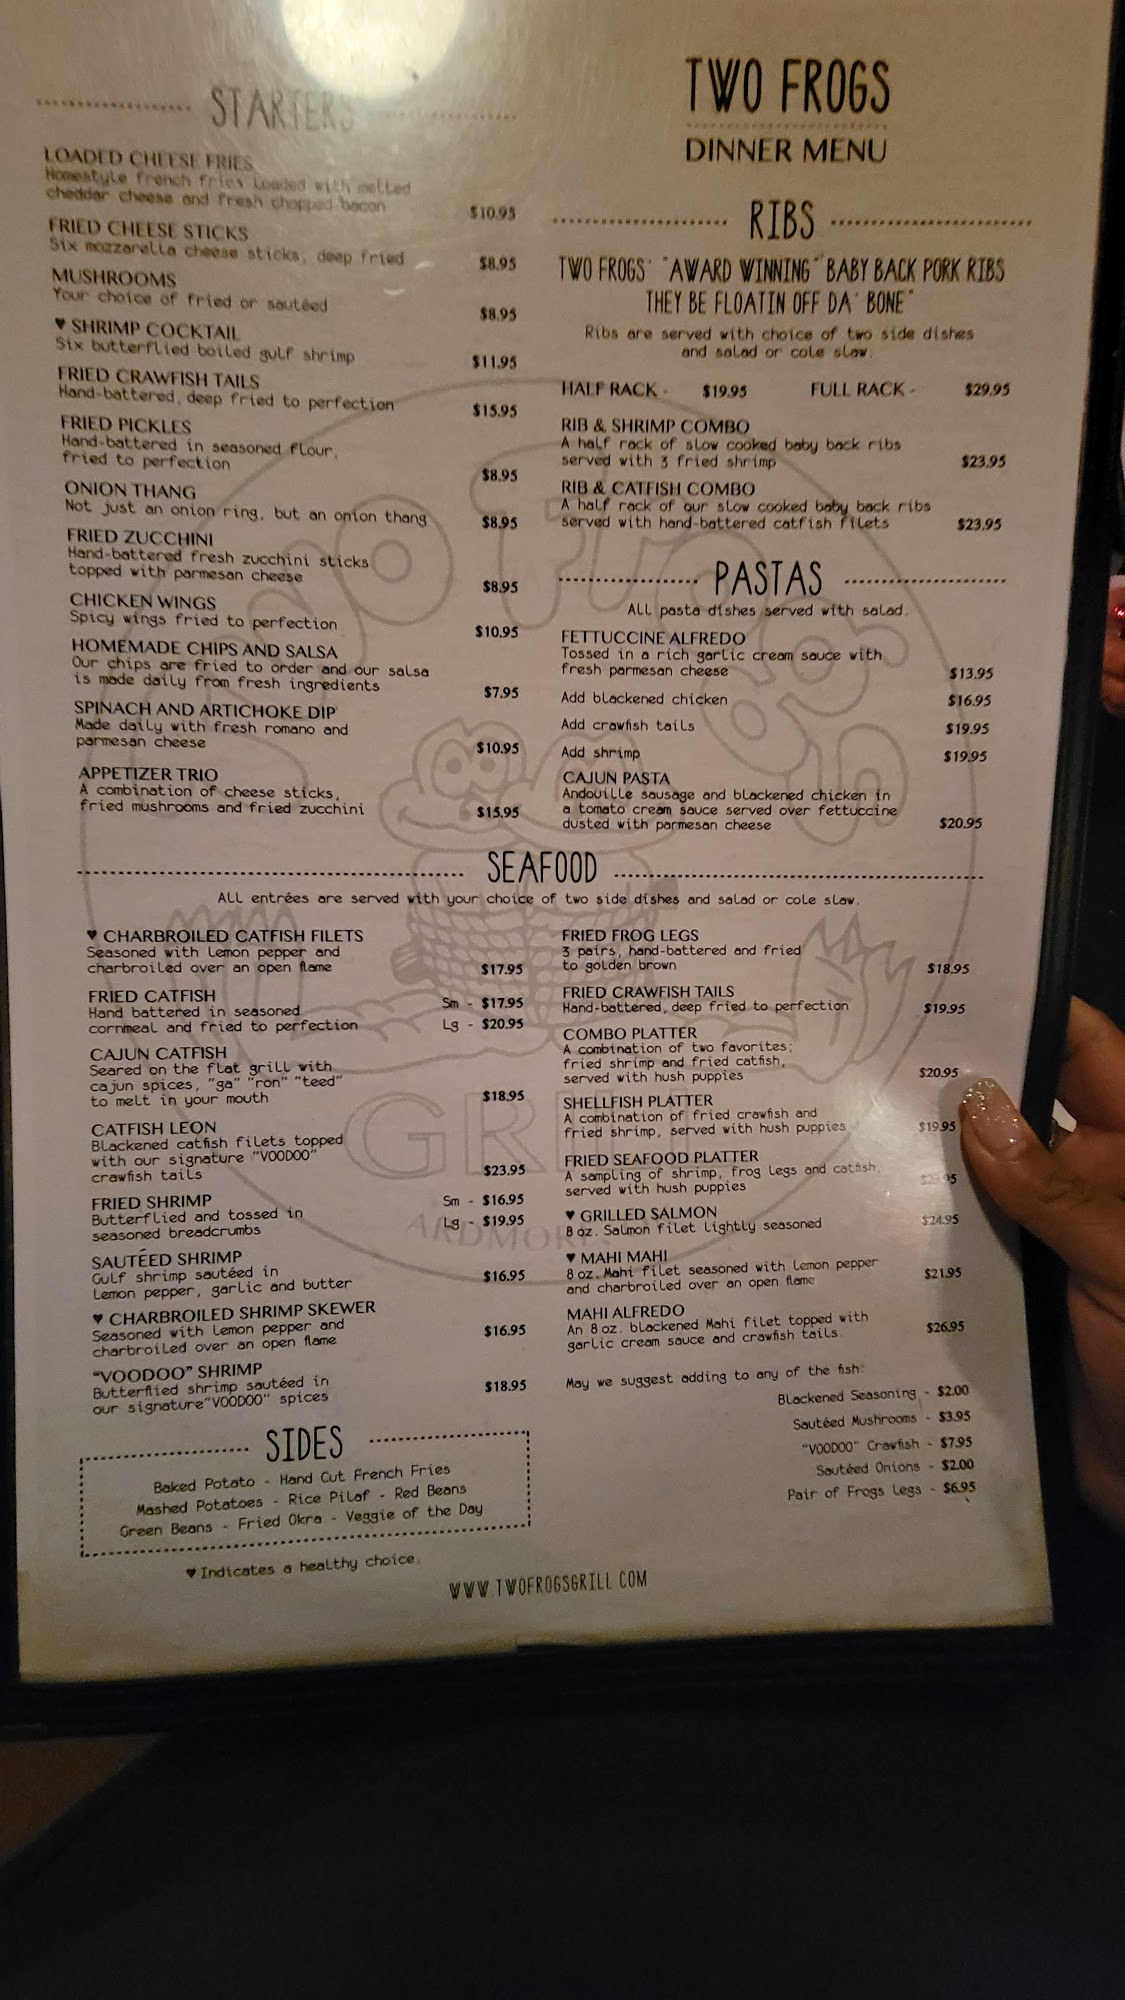 STARTERS
LOADED CHEESE FRIES
Homestyle french fries Loaded with melted
cheddar cheese and fresh chopped bacon
$10.95
FRIED CHEESE STICKS
Six mozzarella cheese sticks, deep fried
$8.95
MUSHROOMS
Your choice of fried or sautéed
$8.95
♥ SHRIMP COCKTAIL
Six butterflied boiled gulf shrimp
$11.95
FRIED CRAWFISH TAILS
Hand-battered, deep fried to perfection
$15.95
FRIED PICKLES
Hand-battered in seasoned flour,
fried to perfection
$8.95
ONION THANG
Not just an onion ring, but an onion thang
$8.95
FRIED ZUCCHINI
Hand-battered fresh zucchini sticks
topped with parmesan cheese
$8.95
CHICKEN WINGS
Spicy wings fried to perfection
$10.95
HOMEMADE CHIPS AND SALSA
Our chips are fried to order and our salsa
is made daily from fresh ingredients
$7.95
SPINACH AND ARTICHOKE DIP
Made daily with fresh romano and
parmesan cheese
$10.95
APPETIZER TRIO
A combination of cheese sticks,
fried mushrooms and fried zucchini
$15.95
TWO FROGS
DINNER MENU
RIBS
TWO FROGS' "AWARD WINNING" BABY BACK PORK RIBS
THEY BE FLOATIN OFF DA' BONE"
Ribs are served with choice of two side dishes
and salad or cole slaw.
HALF RACK - $19.95 FULL RACK - $29.95
RIB & SHRIMP COMBO
A half rack of slow cooked baby back ribs
served with 3 fried shrimp
$23.95
RIB & CATFISH COMBO
A half rack of our slow cooked baby back ribs
served with hand-battered catfish filets
$23.95
PASTAS
All pasta dishes served with salad.
FETTUCCINE ALFREDO
Tossed in a rich garlic cream sauce with
fresh parmesan cheese
$13.95
Add blackened chicken $16.95
Add crawfish tails $19.95
Add shrimp $19.95
CAJUN PASTA
Andouille sausage and blackened chicken in
a tomato cream sauce served over fettuccine
dusted with parmesan cheese
$20.95
SEAFOOD
All entrées are served with your choice of two side dishes and salad or cole slaw.
♥ CHARBROILED CATFISH FILETS
Seasoned with lemon pepper and
charbroiled over an open flame
$17.95
FRIED CATFISH
Hand battered in seasoned
cornmeal and fried to perfection
Sm - $17.95
Lg - $20.95
CAJUN CATFISH
Seared on the flat grill with
cajun spices, "ga" "ron" "teed"
to melt in your mouth
$18.95
CATFISH LEON
Blackened catfish filets topped
with our signature "VOODOO"
crawfish tails
$23.95
FRIED SHRIMP
Butterflied and tossed in
seasoned breadcrumbs
Sm - $16.95
Lg - $19.95
SAUTÉED SHRIMP
Gulf shrimp sautéed in
Lemon pepper, garlic and butter
$16.95
♥ CHARBROILED SHRIMP SKEWER
Seasoned with Lemon pepper and
charbroiled over an open flame
$16.95
"VOODOO" SHRIMP
Butterflied shrimp sautéed in
our signature"VOODOO" spices
$18.95
FRIED FROG LEGS
3 pairs, hand-battered and fried
to golden brown
$18.95
FRIED CRAWFISH TAILS
Hand-battered, deep fried to perfection
$19.95
COMBO PLATTER
A combination of two favorites;
fried shrimp and fried catfish,
served with hush puppies
$20.95
SHELLFISH PLATTER
A combination of fried crawfish and
fried shrimp, served with hush puppies
$19.95
FRIED SEAFOOD PLATTER
A sampling of shrimp, frog legs and catfish,
served with hush puppies
♥ GRILLED SALMON
8 oz. Salmon filet lightly seasoned
$24.95
♥ MAHI MAHI
8 oz. Mahi filet seasoned with Lemon pepper
and charbroiled over an open flame
$21.95
MAHI ALFREDO
An 8 oz. blackened Mahi filet topped with
garlic cream sauce and crawfish tails.
$26.95
May we suggest adding to any of the fish:
Blackened Seasoning - $2.00
Sautéed Mushrooms - $3.95
"VOODOO" Crawfish - $7.95
Sautéed Onions - $2.00
Pair of Frogs legs - $6.95
SIDES
Baked Potato - Hand Cut French Fries
Mashed Potatoes - Rice Pilaf - Red Beans
Green Beans - Fried Okra - Veggie of the Day
♥ Indicates a healthy choice.
WWW.TWOFROGSGRILL.COM